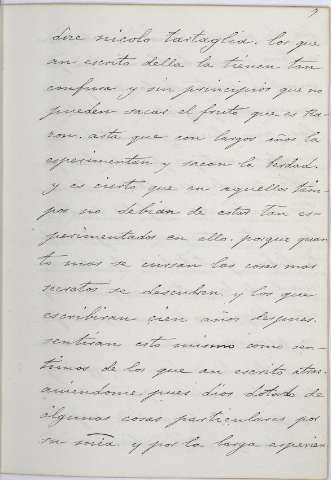 dize nicolo tartaglia. los que
an escrito della la tienen tan
confusa y sin principios que no
pueden sacar el fruto que es Ra-
zon. asta que con largos años la
esperimentan y sacan la berdad.
y es cierto que en aquellos tiem-
pos no debian de estar tan es-
perimentados en ello, porque quan
to mas se cursan las cosas mas
secretos se descubren y los que
escribiran cien años despues.
sentiran esto mismo como sen-
timos de los que an escrito atras.
auiendome pues dios dotado de
algunas cosas particulares por
su mia y por la larga esperien